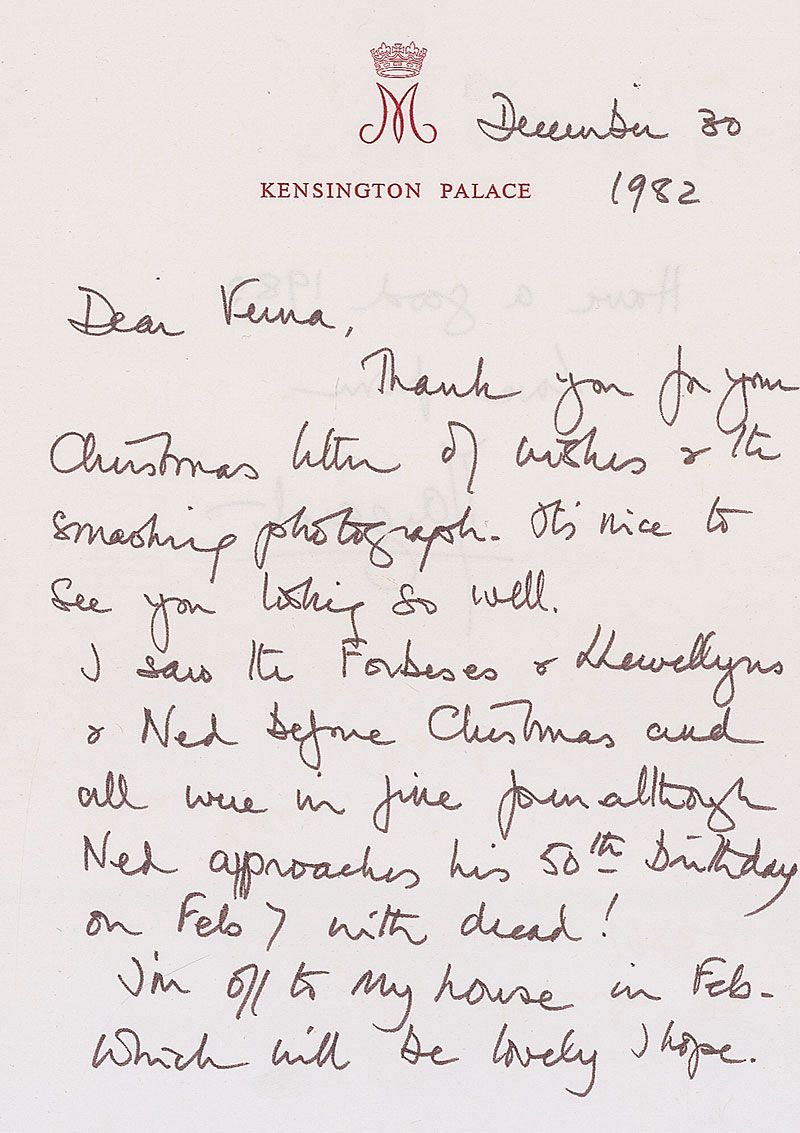 M
December 30
KENSINGTON PALACE
1982
Dear Verna,
Thank you for your
Christmas letter of wishes & the
smashing photograph. It's nice to
see you looking so well.
I saw the Forbeses & Llewellyns
& Ned before Christmas and
all were in fine form although
Ned approaches his 50th birthday
on Feb 7 with dread!
I'm off to my house in Feb-
which will be lovely I hope.
Have a good 198
love from
Margaret